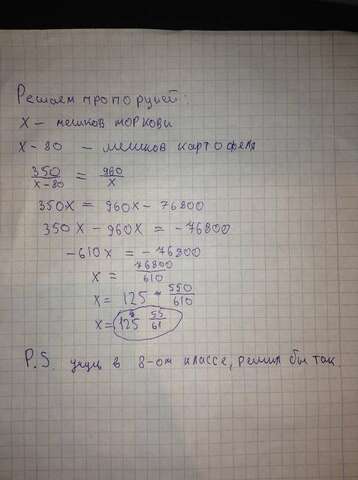 Решаем пропорцией:
х – мешков моркови
х-80 – мешков картофеля
350/х-80 = 960/х
350х = 960х - 76800
350х - 960х = -76800
-610х = -76800
х = 76800/610
х = 125 550/610
х = 125 55/61
P.S. учусь в 8-ом классе, решил бы так